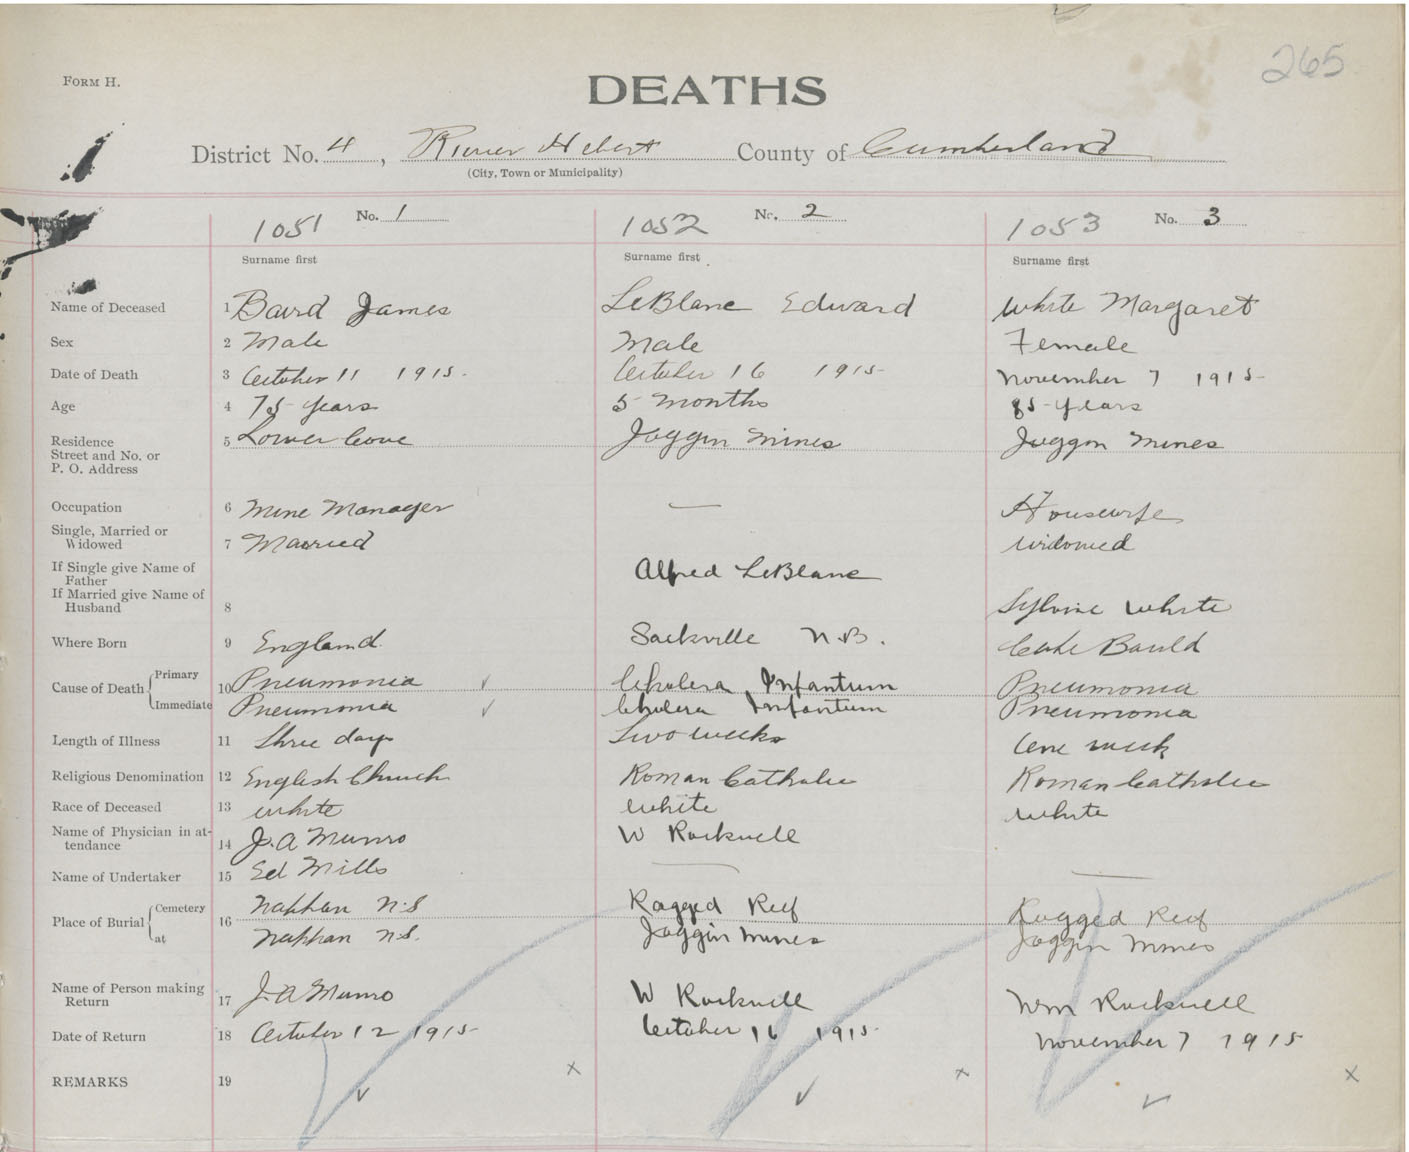 265
FORM H.
DEATHS
District No. 4, River Hebert County of Cumberland
(City, Town or Municipality)
1051 No. 1 1052 No. 2 1053 No. 3
Surname first Surname first Surname first
Name of Deceased 1 Baird James LeBlanc Edward White Margaret
Sex 2 Male Male Female
Date of Death 3 October 11 1915. October 16 1915 November 7 1915
Age 4 75 years 5 months 85 years
Residence 5 Lower Cove Joggin Mines Joggin Mines
Street and No. or
P. O. Address
Occupation 6 Mine Manager — Housewife
Single, Married or
Widowed 7 Married widowed
If Single give Name of
Father Alfred LeBlanc
If Married give Name of
Husband 8 Sylvine White
Where Born 9 England. Sackville N.B. Bauld
Cause of Death Primary 10 Pneumonia Cholera Infantum Pneumonia
Immediate Pneumonia Cholera Infantum Pneumonia
Length of Illness 11 Three days Two weeks One week
Religious Denomination 12 English Church Roman Catholic Roman Catholic
Race of Deceased 13 white white white
Name of Physician in at-
tendance 14 J.A Munro W Rockwell
Name of Undertaker 15 Ed Mills — —
Place of Burial Cemetery 16 Nappan N.S Ragged Reef Ragged Reef
at Nappan N.S. Joggin Mines Joggin Mines
Name of Person making
Return 17 J.A Munro W Rockwell Wm Rockwell
Date of Return 18 October 12 1915 October 16 1915 November 7 1915
REMARKS 19 x x x